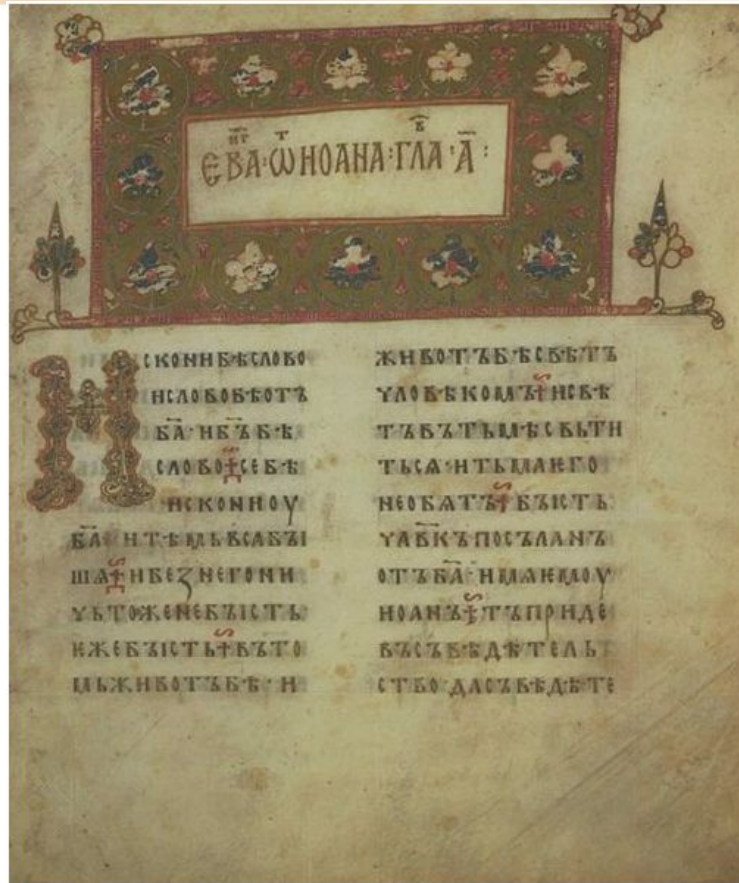 ЕВА · ѾИОАНА · ГЛА · А҃ :
ИСКОНИБѢСЛОВО
ИСЛОВОБѢОТЪ
БА҃ · ИБ҃ЪБѢ
СЛОВО СЕБѢ
ИСКОНИОУ
БА҃ ИТѢМЬВСАБЫ
ШѦ ИБЕЗНЕГОНИ
ЧЬТОЖЕНЕБЪІСТЬ
ИЖЕБЪІСТЬ ВЪТО
МЬЖИВОТЪБѢ · И
ЖИВОТЪБѢСВѢТЪ
ЧЛОВѢКОМЪ ИСВѢ
ТЪВЪТЬМѢСВЬТИ
ТЬСѦ · ИТЬМАЕГО
НЕОБѦТЪ БЪІСТЬ
ЧЛ҃ВКЪПОСЪЛАНЪ
ОТЪБА҃ · ИМѦЕМОУ
ИОАНЪ ТЪПРИДЕ
ВЪСЪВѢДѢТЕЛЬ
СТВО · ДАСЪВѢДѢТЕ